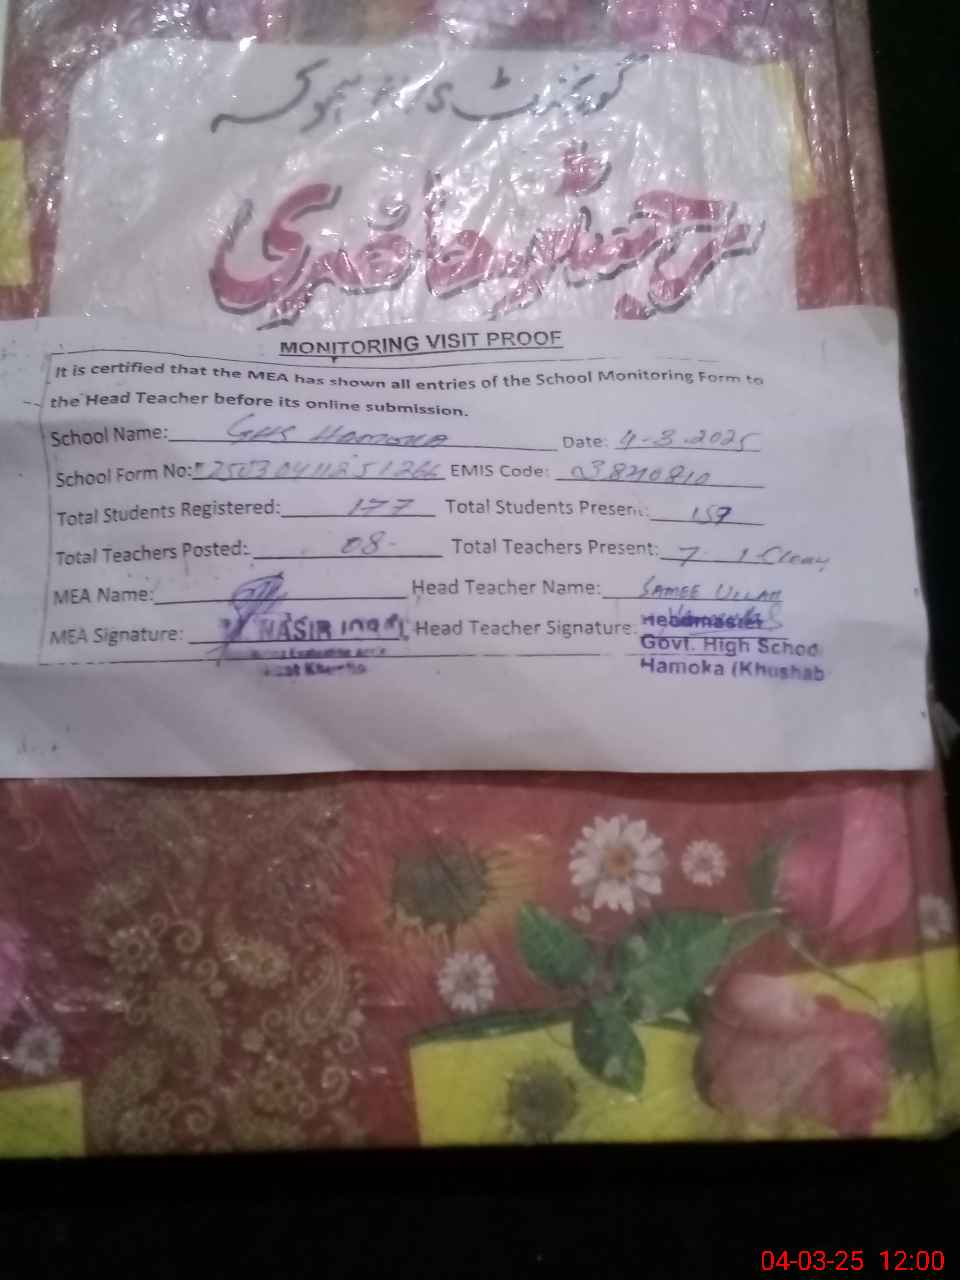 گورنمنٹ ہموکہ
رجسٹر حاضری
MONITORING VISIT PROOF
It is certified that the MEA has shown all entries of the School Monitoring Form to
the Head Teacher before its online submission.
School Name: GHS HAMOKA Date: 4-3-2025
School Form No: EMIS Code:
Total Students Registered: 177 Total Students Present: 157
Total Teachers Posted: 08- Total Teachers Present: 7
MEA Name: Head Teacher Name: SAMEE ULLAH
MEA Signature: NASIR Head Teacher Signature: Headmaster
Govt. High School
Hamoka (Khushab
04-03-25 12:00